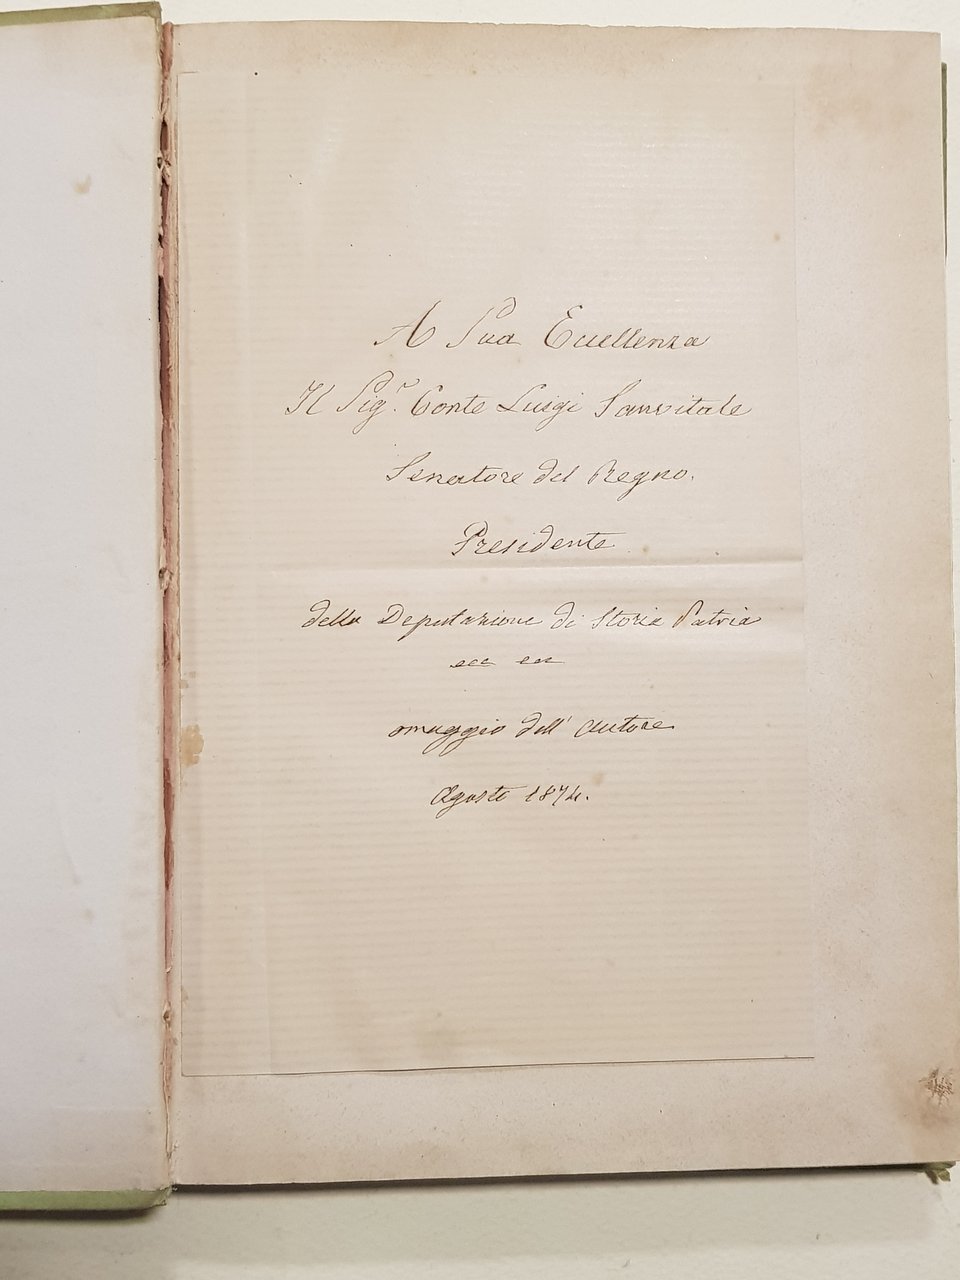 A Sua Eccellenza
Il Sigr. Conte Luigi Sanvitale
Senatore del Regno.
Presidente
della Deputazione di Storia Patria
ecc ecc
omaggio dell' autore
Agosto 1874.